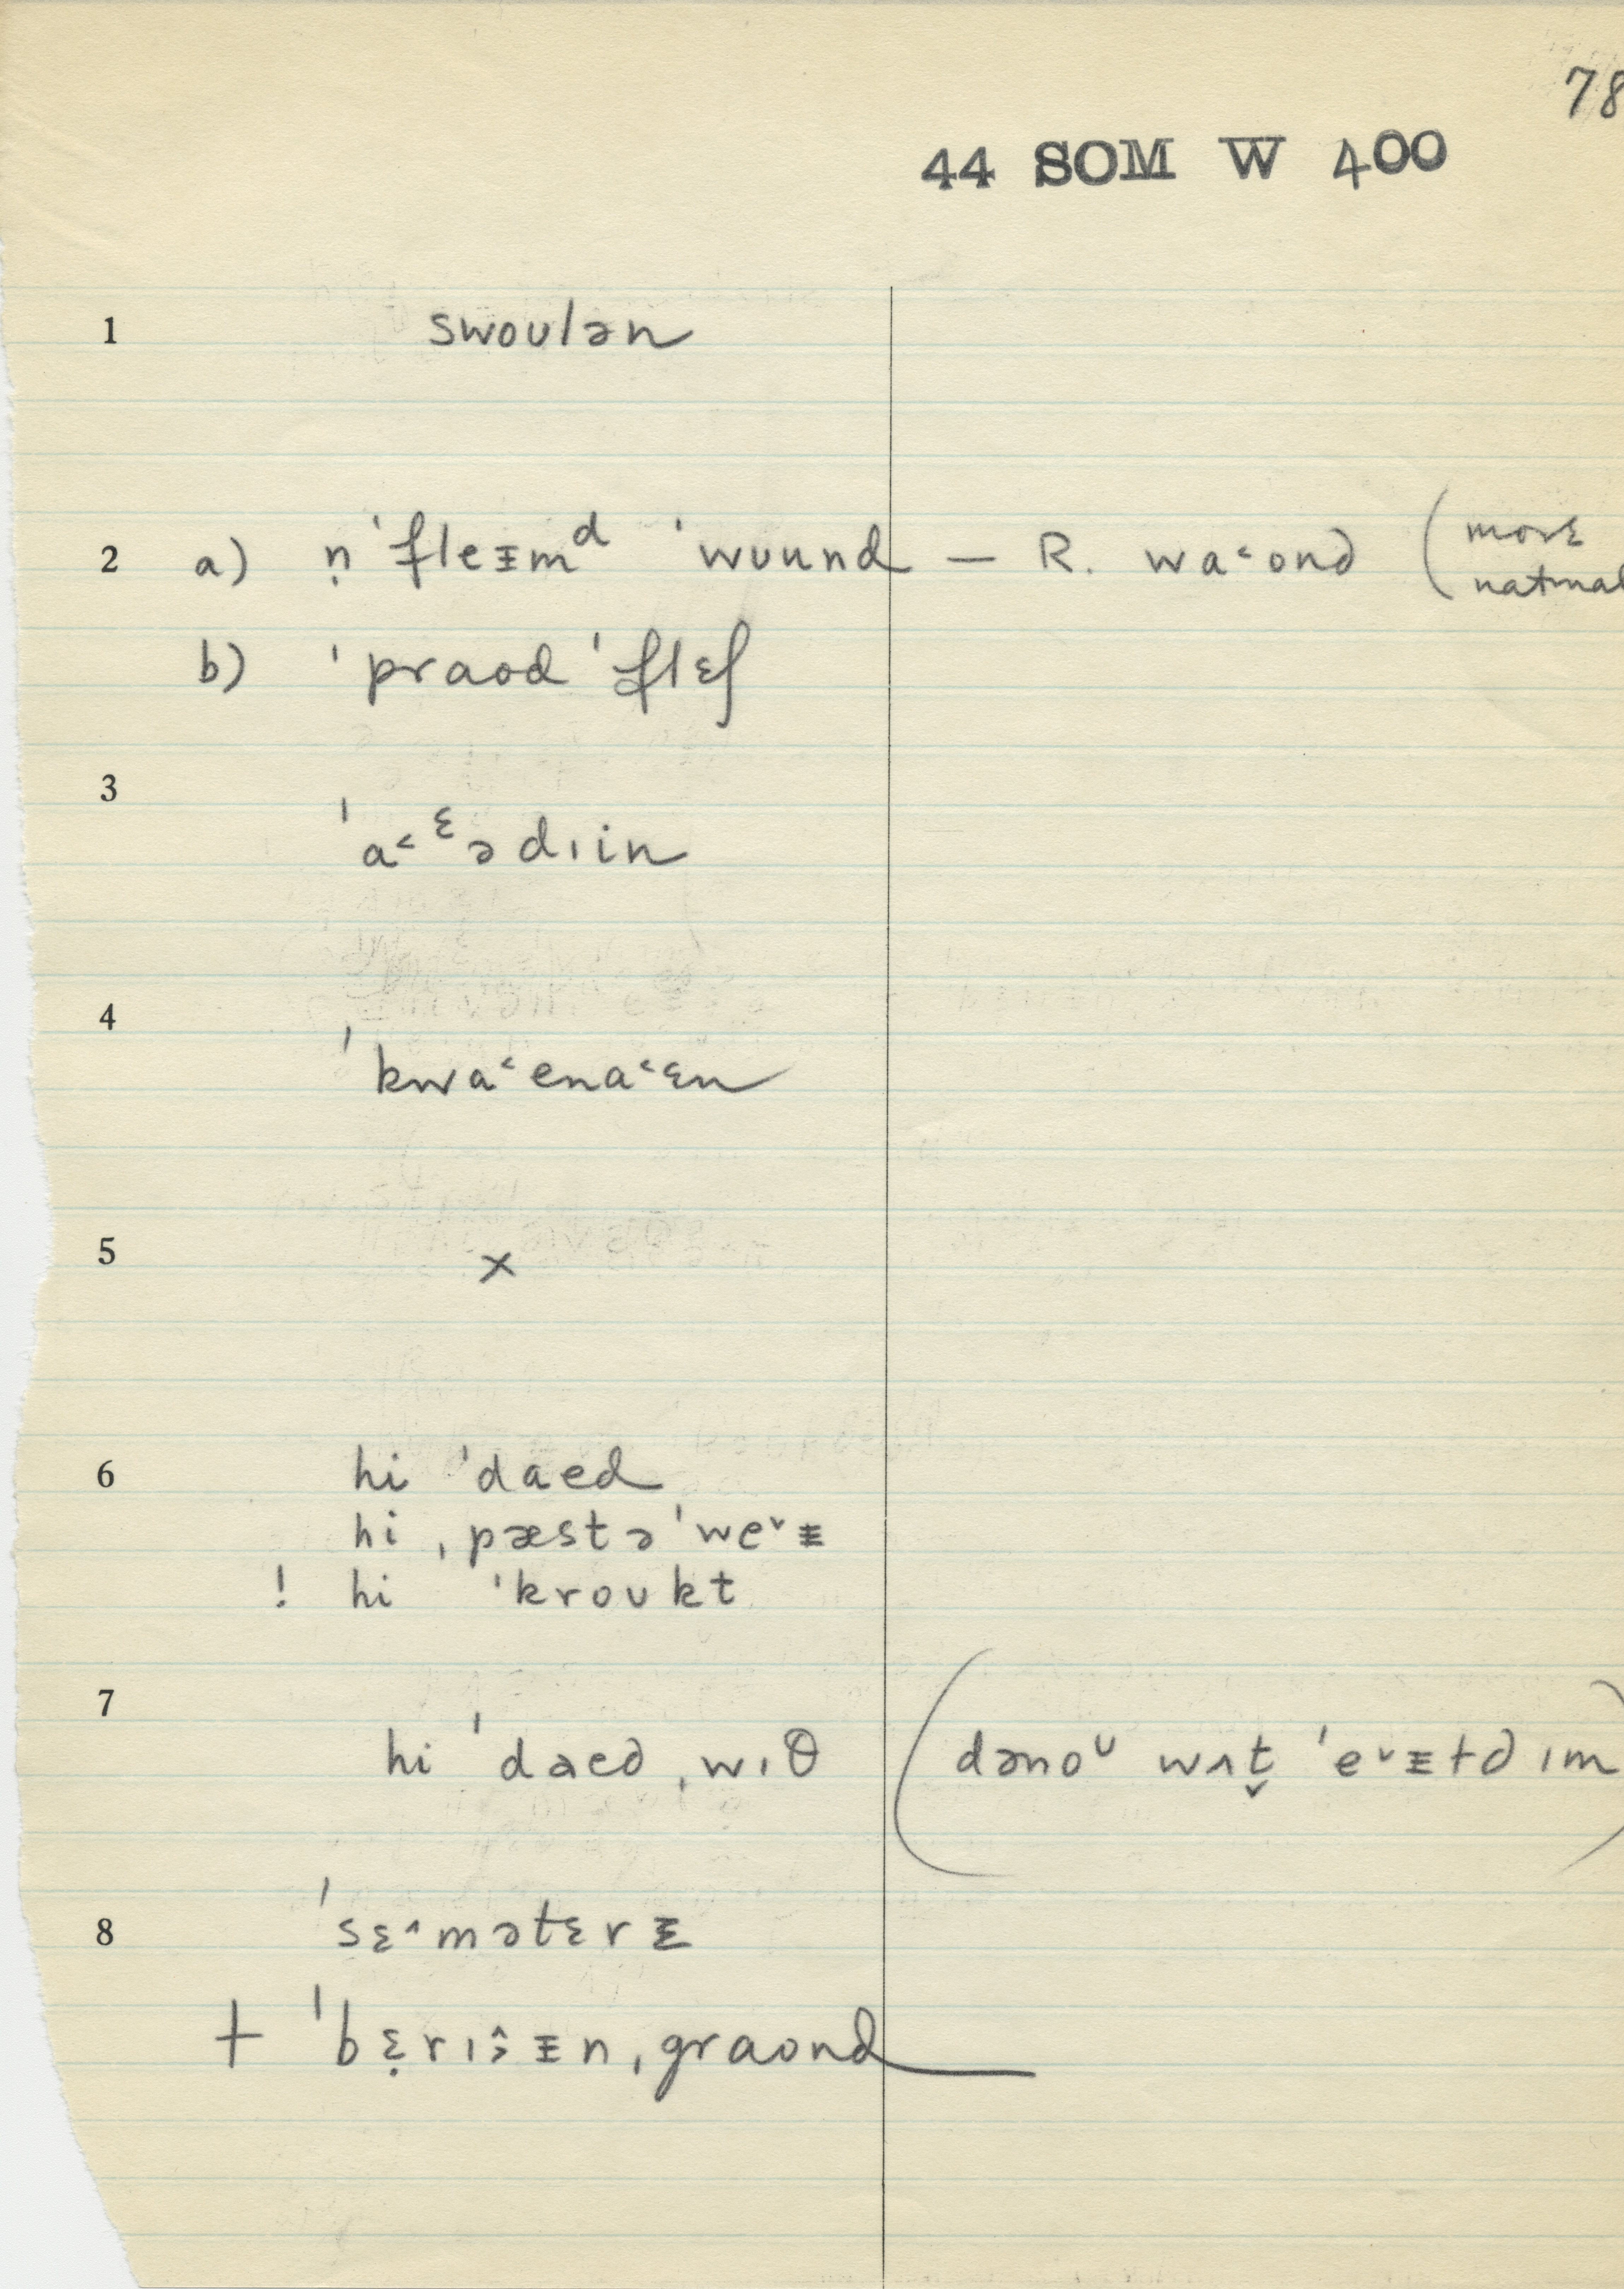 78
44 SOM W 400
1 swoulən
2 a) ṇ ˈfleɪ̵mᵈ ˈwuund — R. wa˂ond (more
natural
b) ˈpraod ˈflɛʃ
3
ˈa˂ᵋədɪin
4
ˈkwa˂ena˂ɛn
5 ×
6 hi ˈdaed
hi ˌpæstəˈwe˅ɪ̵
! hi ˈkroukt
7
hi ˈdaed ˌwɪθ (dənoᶷ wʌt̬ ˈe˅ɪ̵ɫd ɪm
8 ˈsɛ˄mətɛrɪ̵
+ ˈbɛ̣rɪɪ̵n ˌgraond